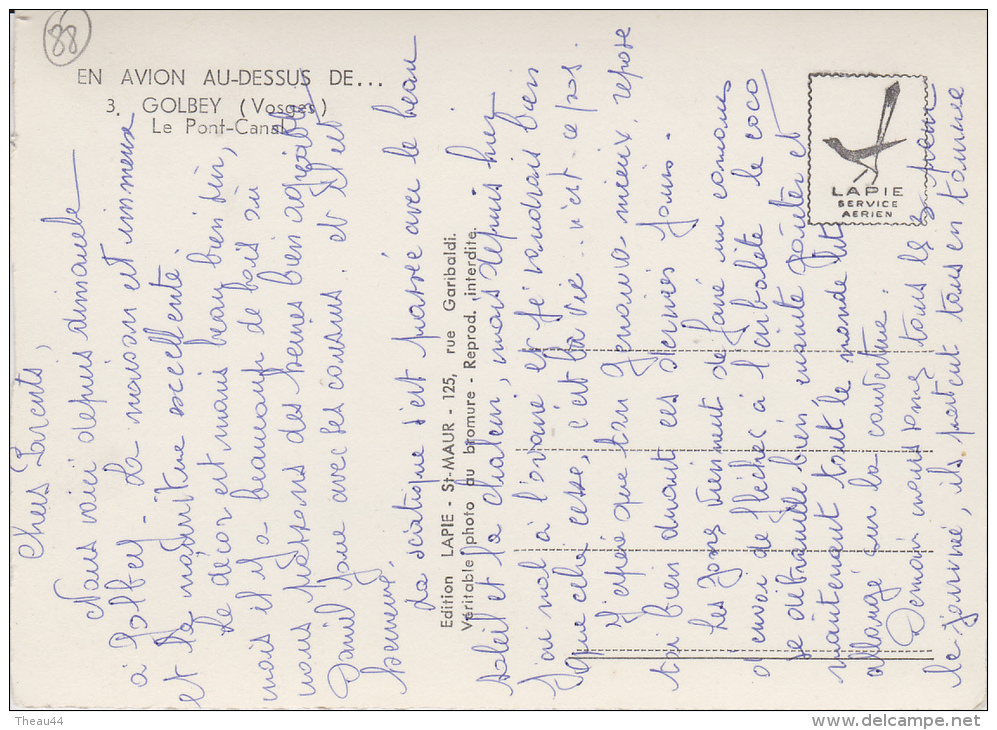 88
EN AVION AU-DESSUS DE...
3. GOLBEY (Vosges)
Le Pont-Canal
LAPIE
SERVICE
AERIEN
Edition LAPIE - St-MAUR - 125, rue Garibaldi.
Véritable photo au bromure - Reprod. interdite.
Chers Parents,
Nous voici depuis dimanche
à Golbey - La maison est immense
et la nourriture excellente.
Le décor est moins beau bien sûr,
mais il y a beaucoup de bois où
nous passons des heures bien agréables
Daniel joue avec ses cousins. et il est
heureux.
La sciatique s'est passée avec le beau
soleil et la chaleur, mais depuis hier
j'ai mal à l'ovaire et je voudrais bien
que cela cesse, c'est la vie - n'est ce pas.
J'espère que ton genou va mieux, repose
toi bien durant ces derniers jours.
Les gars viennent de faire un concours
d'envoi de flèches à l'arbalète le coco
se débrouille bien ensuite goûter et
maintenant tout le monde lit
allongé sur la couverture.
Demain nous sommes tous les
la journée, ils partent tous en tournée
Theau44
www.delcampe.net